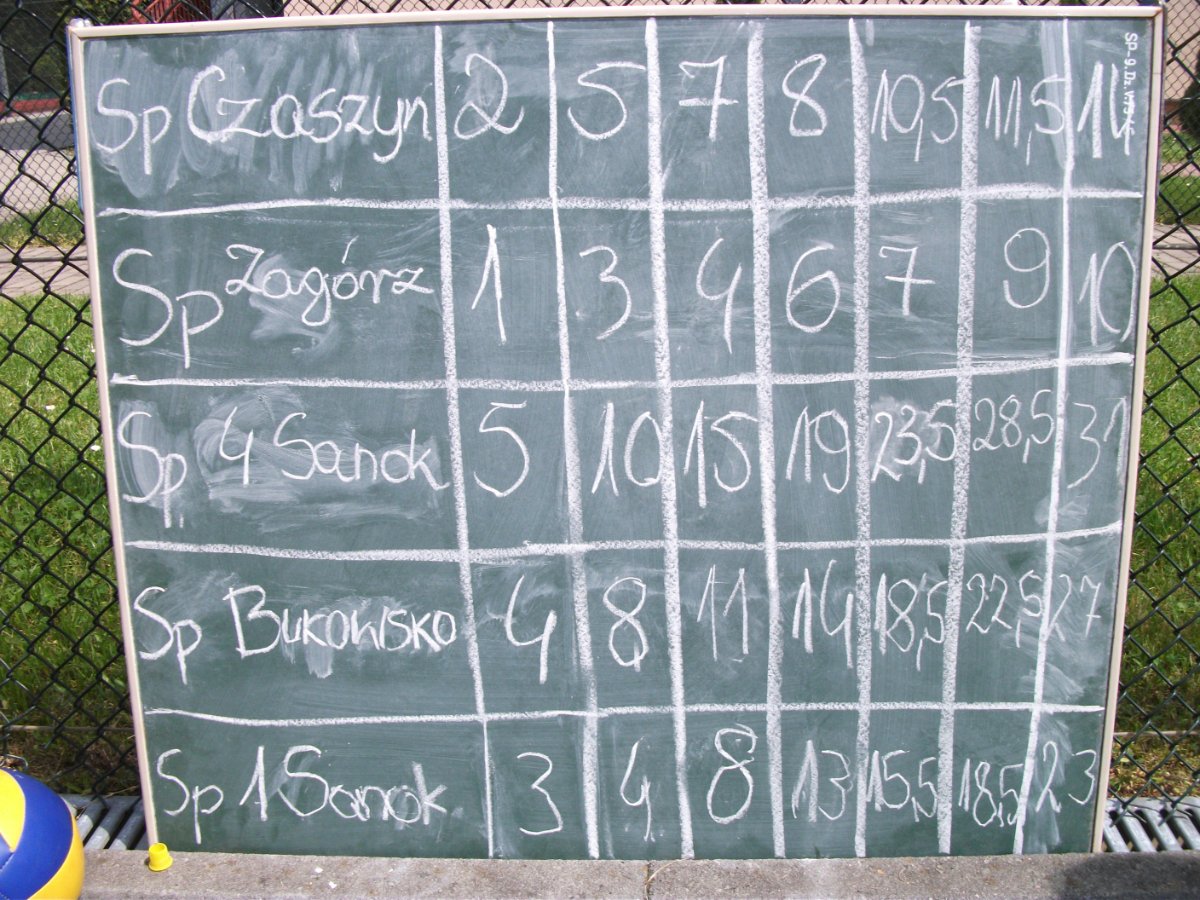 Sp Czaszyn 2 5 7 8 10,5 11,5 14
Sp Zagórz 1 3 4 6 7 9 10
Sp 4 Sanok 5 10 15 19 23,5 28,5 31
Sp Bukowsko 4 8 11 14 18,5 22,5 27
Sp 1 Sanok 3 4 8 13 15,5 18,5 23